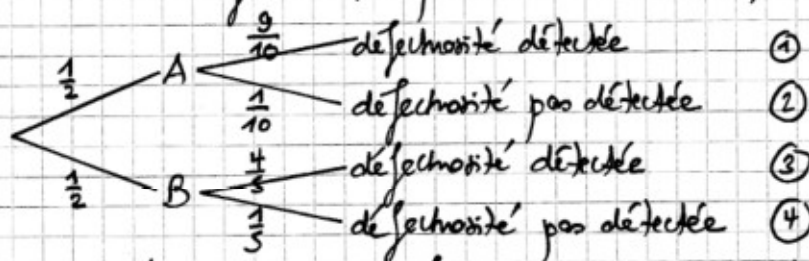 9/10 défectuosité détectée ①
1/2 A
1/10 défectuosité pas détectée ②
4/5 défectuosité détectée ③
1/2 B
1/5 défectuosité pas détectée ④